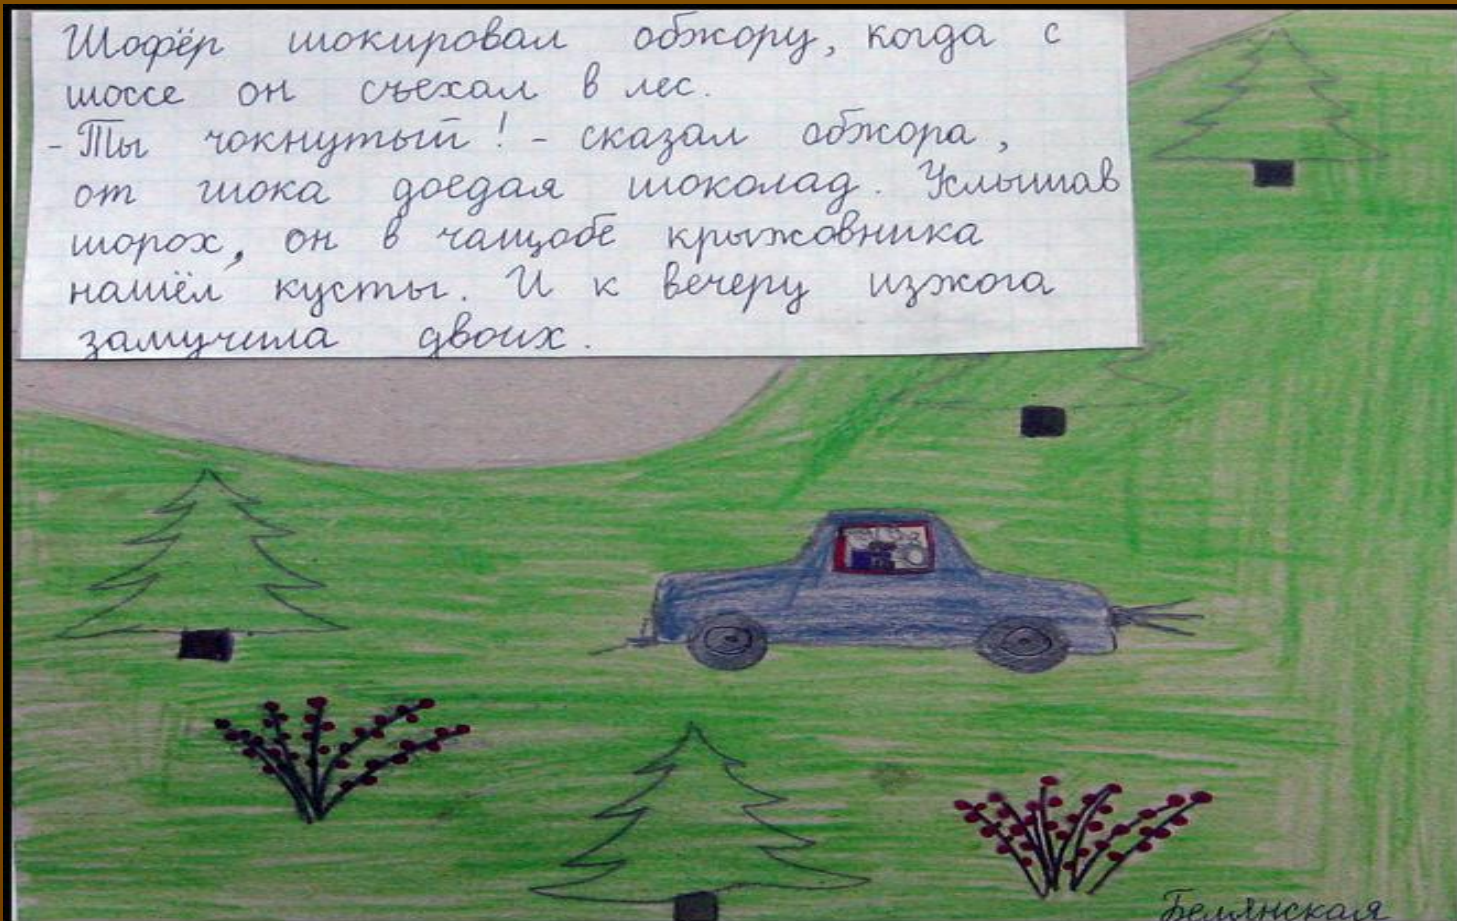 Шофёр шокировал обжору, когда с
шоссе он съехал в лес.
- Ты чокнутый! - сказал обжора,
от шока доедая шоколад. Услышав
шорох, он в чащобе крыжовника
нашёл кусты. И к вечеру изжога
замучила двоих.
Белянская